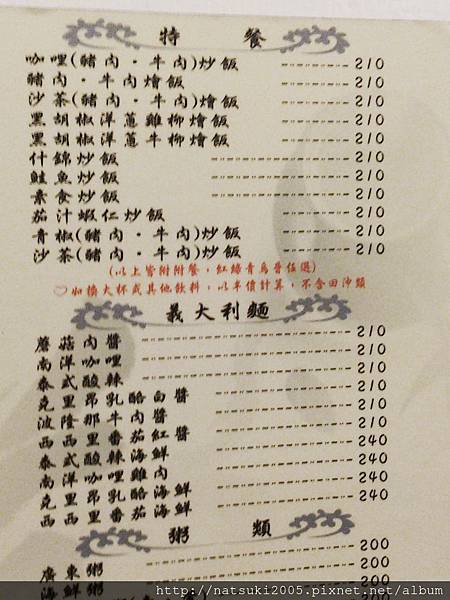 特餐
咖哩(豬肉·牛肉)炒飯 210
豬肉·牛肉燴飯 210
沙茶(豬肉·牛肉)燴飯 210
黑胡椒洋蔥雞柳燴飯 210
黑胡椒洋蔥牛柳燴飯 210
什錦炒飯 210
鮭魚炒飯 210
素食炒飯 210
茄汁蝦仁炒飯 210
青椒(豬肉·牛肉)炒飯 210
沙茶(豬肉·牛肉)炒飯 210
(以上皆附附餐,紅綠青烏普任選)
♡如換大杯或其他飲料,以半價計算,不含田沖類
義大利麵
蘑菇肉醬 210
南洋咖哩 210
泰式酸辣 210
克里昂乳酪白醬 210
波隆那牛肉醬 210
西西里番茄紅醬 210
泰式酸辣海鮮 240
南洋咖哩雞肉 240
克里昂乳酪海鮮 240
西西里番茄海鮮 240
粥類
廣東粥 200
海鮮粥 200
200
http://natsuki2005.pixnet.net/album